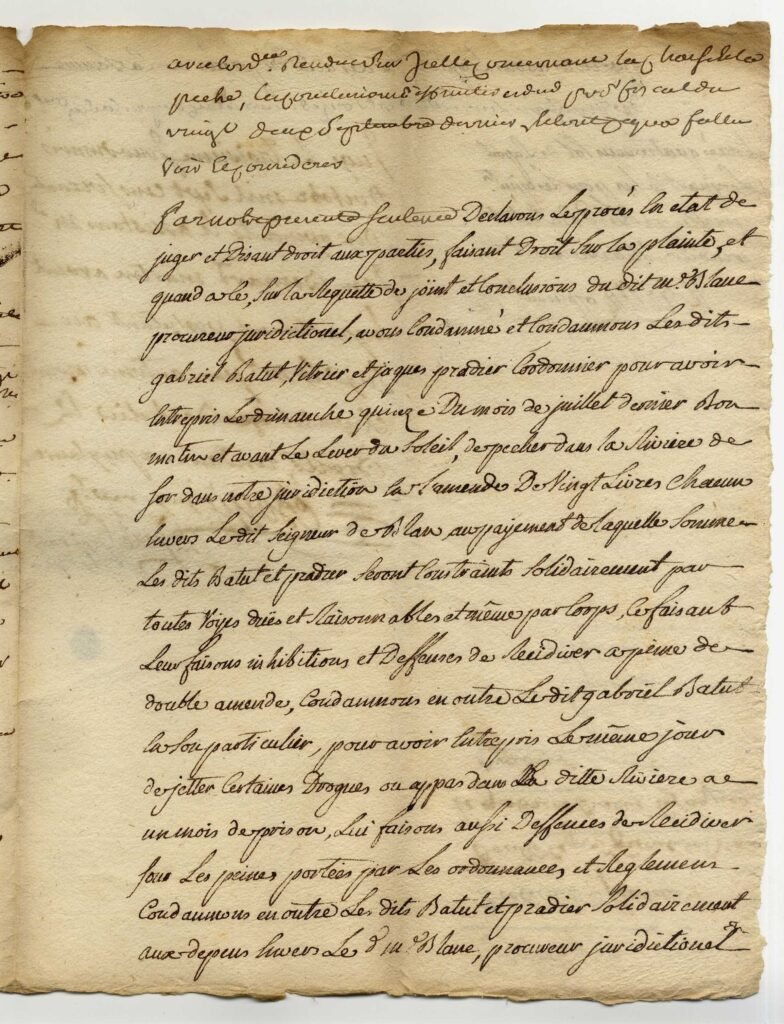 avec lord.ce Rendue Sur Icelle Concernant la Chasse et la
peche, les Conclusions diffinitives du d. procr. fiscal du
vingt deux Septembre dernier et tout ce qua fallu
voir et considerer
Par notre presente Sentence Declarons Le procès En etat de
juger et Disant droit aux parties, faisant Droit Sur la plainte, et
quand a le, Sur la Requette de joint et Conclusions du dit me. Blanc
procureur juridictionel, avons Condamné et Condamnons Les dits
gabriel Batut, Vitrier et jaques pradier Cordonnier pour avoir
Entrepris Le dimanche quinze Du mois de juillet dernier Bon
matin et avant Le Lever du Soleil, de pecher dans la Riviere de
Sor dans notre juridiction En L'amende De Vingt Livres Chacun
Envers Le dit Seigneur de Blan, au payement de laquelle Somme
Les dits Batut et pradier Seront Constraints Solidairement par
toutes Voyes dues et Raisonnables et même par Corps, Ce faisant
Leur faisons inhibitions et Deffenses de Recidiver a peine de
double amende, Condamnons en outre Le dit gabriel Batut
En Son particulier, pour avoir Entrepris Le même jour
de jetter Certaines Drogues ou appas dans La ditte Riviere a
un mois de prison, Lui faisons aussi Deffences de Recidiver
Sous Les peines portées par Les ordonnances, et Reglemens
Condamnons en outre Les dits Batut et pradier Solidairement
aux depens Envers Le d me. Blanc, procureur juridictionel